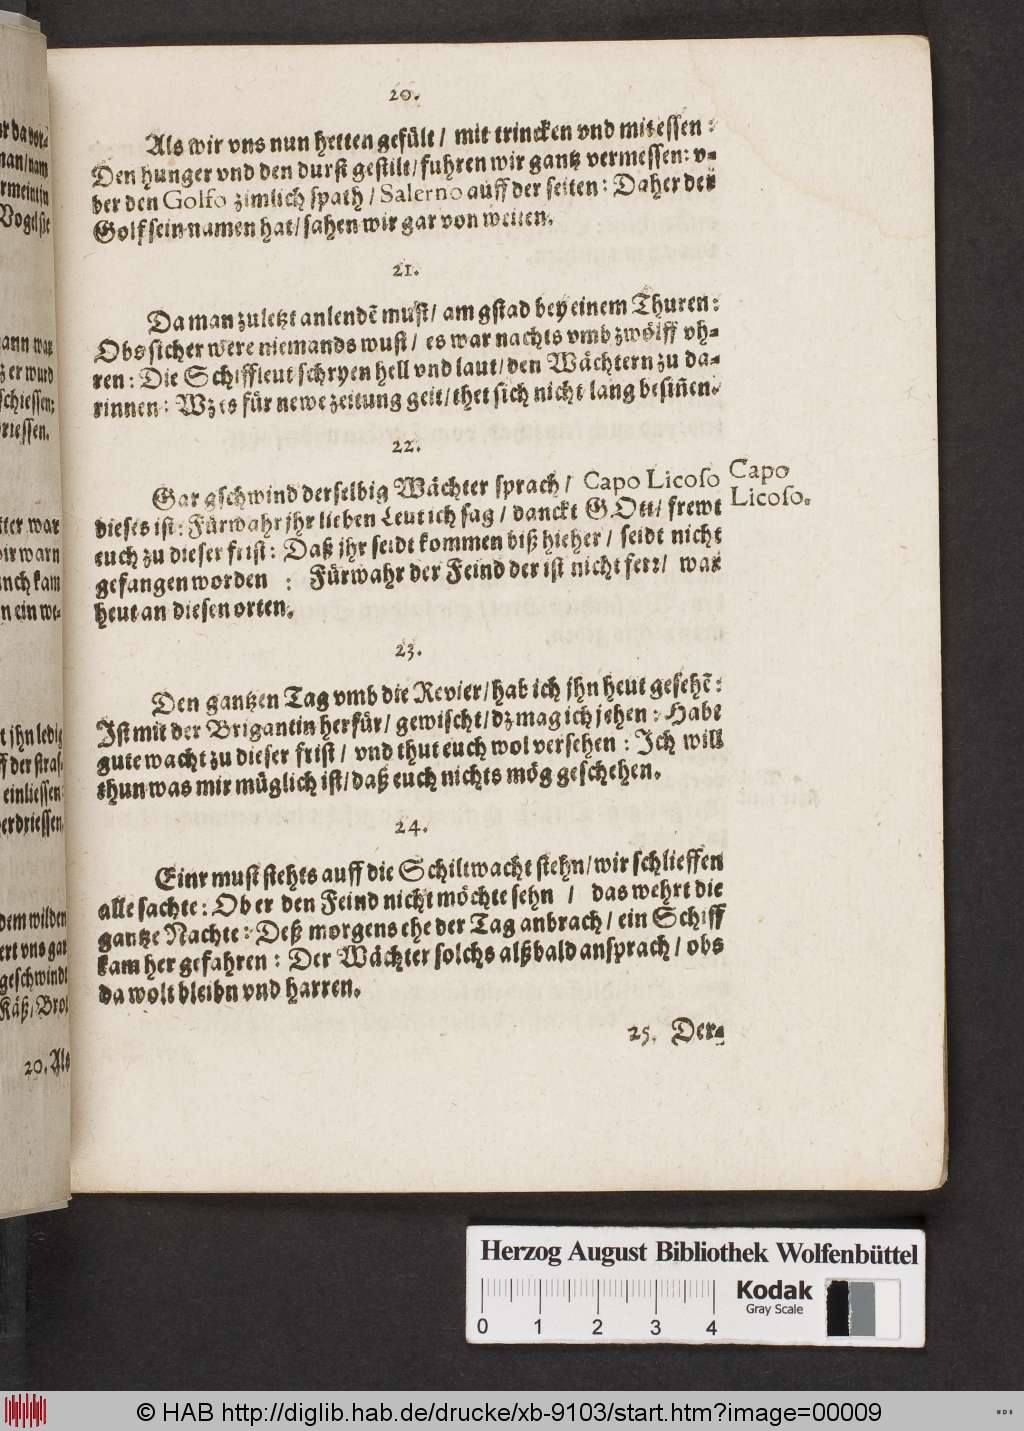 20.
Als wir vns nun hetten gefült / mit trincken vnd mit essen :
Den hunger vnd den durst gestilt / fuhren wir gantz vermessen : v-
ber den Golfo zimlich spath / Salerno auff der seiten : Daher der
Golf sein namen hat / sahen wir gar von weiten.
21.
Da man zuletzt anlendē must / am gstad bey einem Thuren :
Obs sicher were niemands wust / es war nachts vmb zwölff vh-
ren : Die Schiffleut schryen hell vnd laut / den Wächtern zu da-
rinnen : Wz es für newe zeitung geit / thet sich nicht lang besiñen.
22.
Gar gschwind derselbig Wächter sprach / Capo Licoso
dieses ist : Fürwahr jhr lieben Leut ich sag / danckt GOtt / frewt
euch zu dieser frist : Daß jhr seidt kommen biß hieher / seidt nicht
gefangen worden : Fürwahr der Feind der ist nicht ferr / war
heut an diesen orten.
Capo
Licoso.
23.
Den gantzen Tag vmb die Revier / hab ich jhn heut gesehē :
Ist mit der Brigantin herfür / gewischt / dz mag ich jehen : Habt
gute wacht zu dieser frist / vnd thut euch wol versehen : Ich will
thun was mir müglich ist / daß euch nichts mög geschehen.
24.
Einr must stehts auff die Schiltwacht stehn / wir schlieffen
alle sachte : Ob er den Feind nicht möchte sehn / das wehrt die
gantze Nachte : Deß morgens ehe der Tag anbrach / ein Schiff
kam her gefahren : Der Wächter solchs alßbald ansprach / obs
da wolt bleibn vnd harren.
25. Der-
20. Als
Herzog August Bibliothek Wolfenbüttel
0 1 2 3 4
Kodak
Gray Scale
© HAB http://diglib.hab.de/drucke/xb-9103/start.htm?image=00009